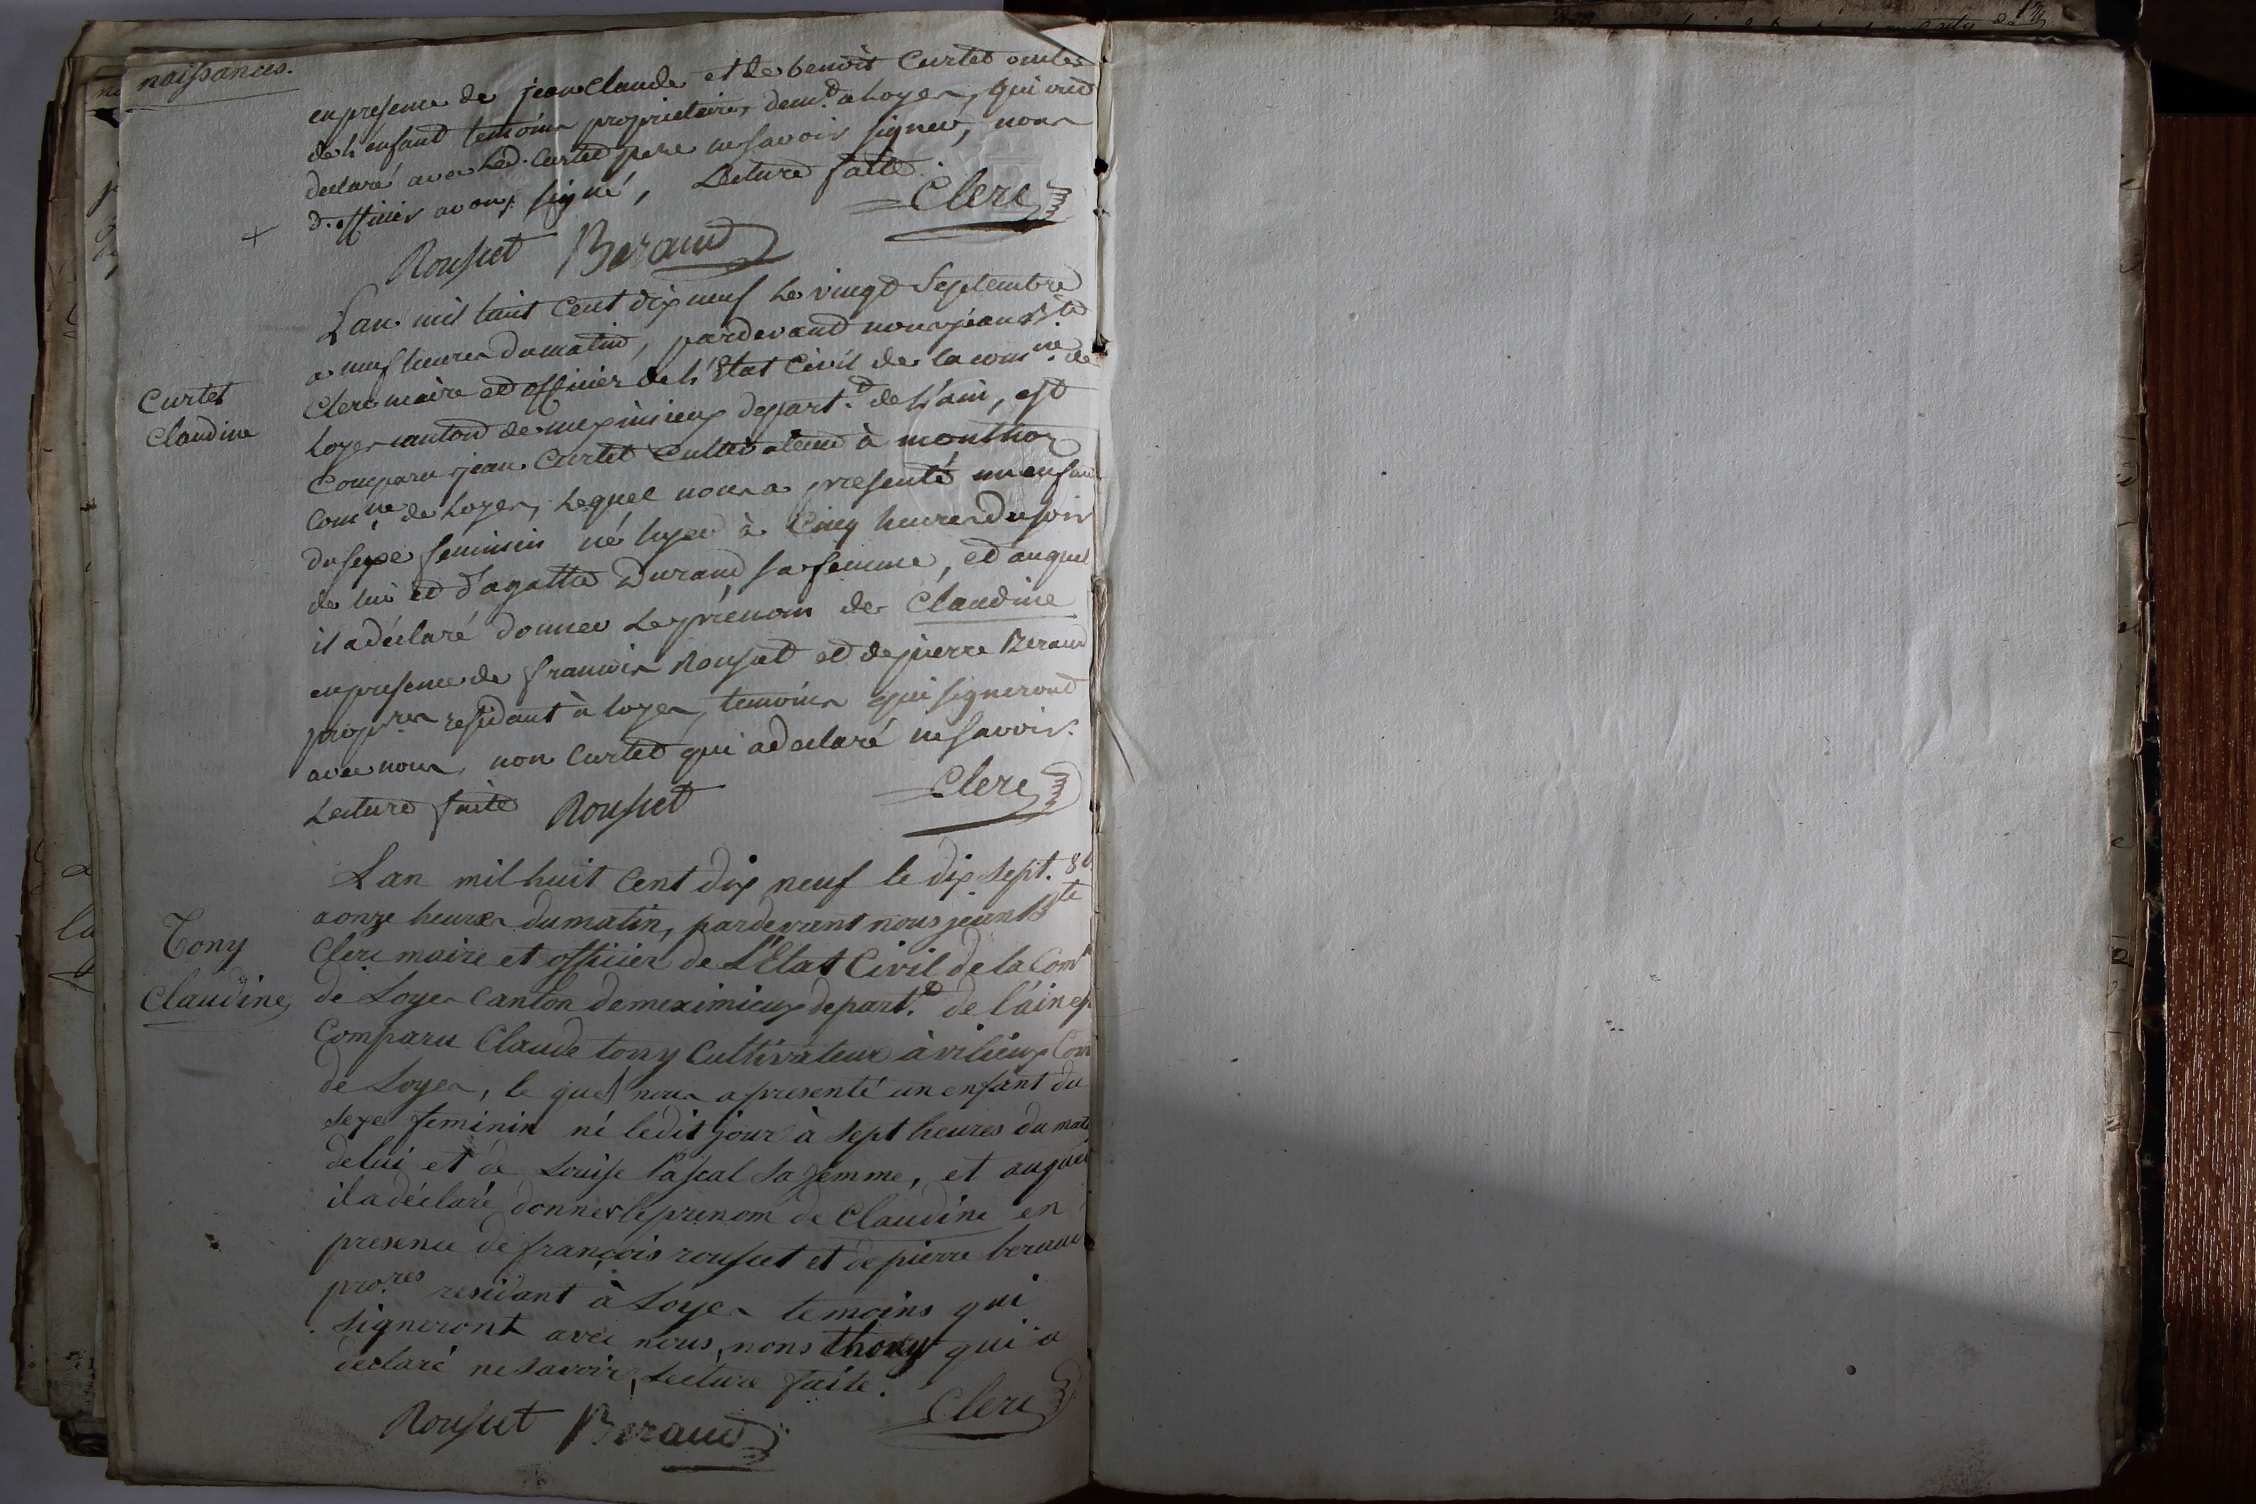 naissances.
en presence de jean Claude et de benoit Curtet oncles
de l'enfant temoins proprietaires dem.t a Loyes, qui ont
declaré avec led. Curtet pere ne savoir signer, nous
d. officier avons signé, Lecture faite.
Clerc
Rousset Beraud
Curtet
Claudine
L'an mil huit Cent dix neuf Le vingt Septembre
a neuf heures du matin, pardevant nous jean B.te
Clerc maire et officier de l'Etat Civil de la com.ne de
loyes canton de meximieux depart.t de L'ain, est
Comparu jean Curtet Cultivateur à monthoz
Com.ne de Loyes, Lequel nous a presenté un enfant
du sexe feminin né hyer à Cinq heures du soir
de lui et d'agathe Durand sa femme, et auquel
il a déclaré donner Le prénom de Claudine
en presence de francois Rousset et de pierre Beraud
prop.res residant à loyes, temoins qui signeront
avec nous, non Curtet qui a declaré ne savoir.
Lecture faite Rousset
Clerc
Tony
Claudine
L'an mil huit Cent dix neuf le dix sept. 8b
a onze heures du matin, pardevant nous jean B.te
Clerc maire et officier de L'Etat Civil de la Com.n
de Loyes Canton de meximieux depart.t de l'ain est
Comparu Claude tony Cultivateur à vilieux Com
de Loyes, le quel nous a presenté un enfant du
sexe feminin né ledit jour à sept heures du mati
de lui et de Louise Pascal sa femme, et auquel
il a déclaré donner le prenom de Claudine en
presence de françois rousset et de pierre beraud
pro.res residant à Loyes temoins qui
signeront avec nous, nons thony qui a
declaré ne savoir, Lecture faite.
Clerc
Rousset Beraud